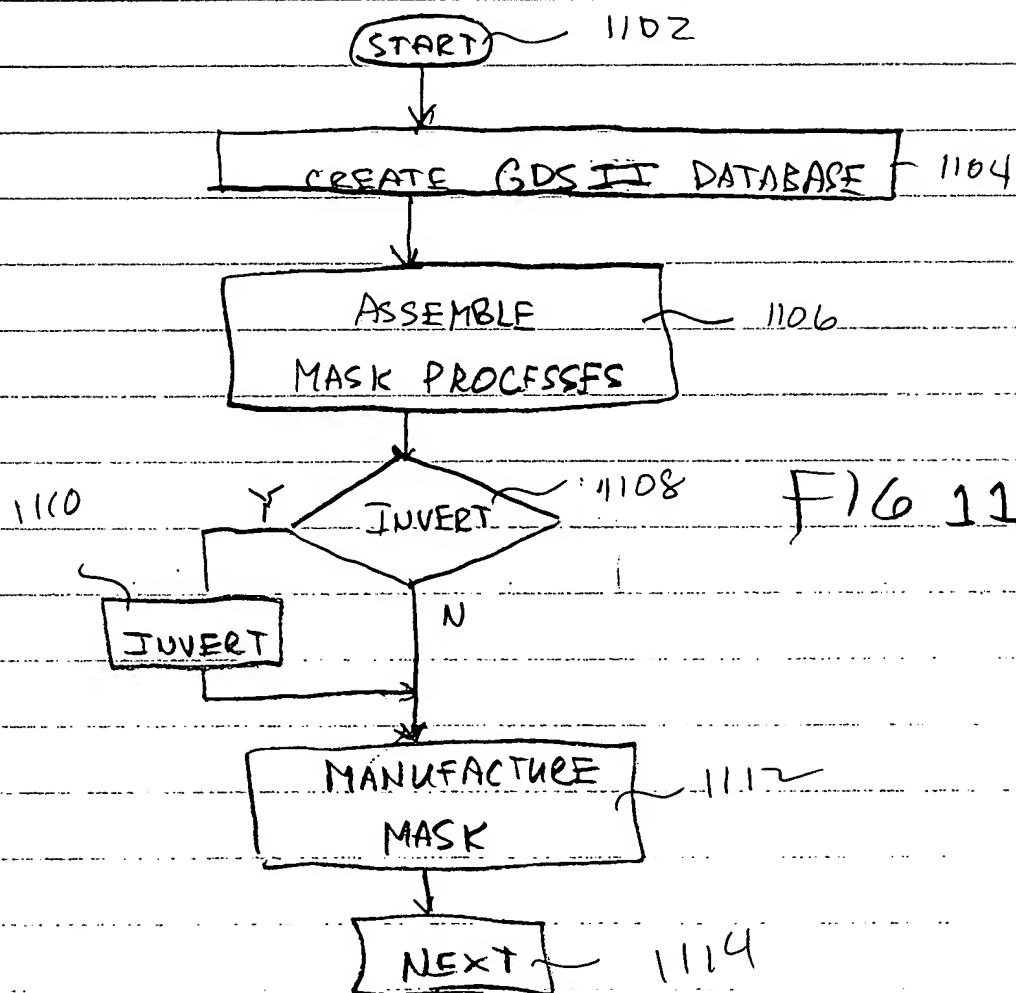 START 1102
CREATE GDS II DATABASE 1104
ASSEMBLE
MASK PROCESSES 1106
INVERT 1108
Y
1110
FIG 11
N
INVERT
MANUFACTURE
MASK 1112
NEXT 1114